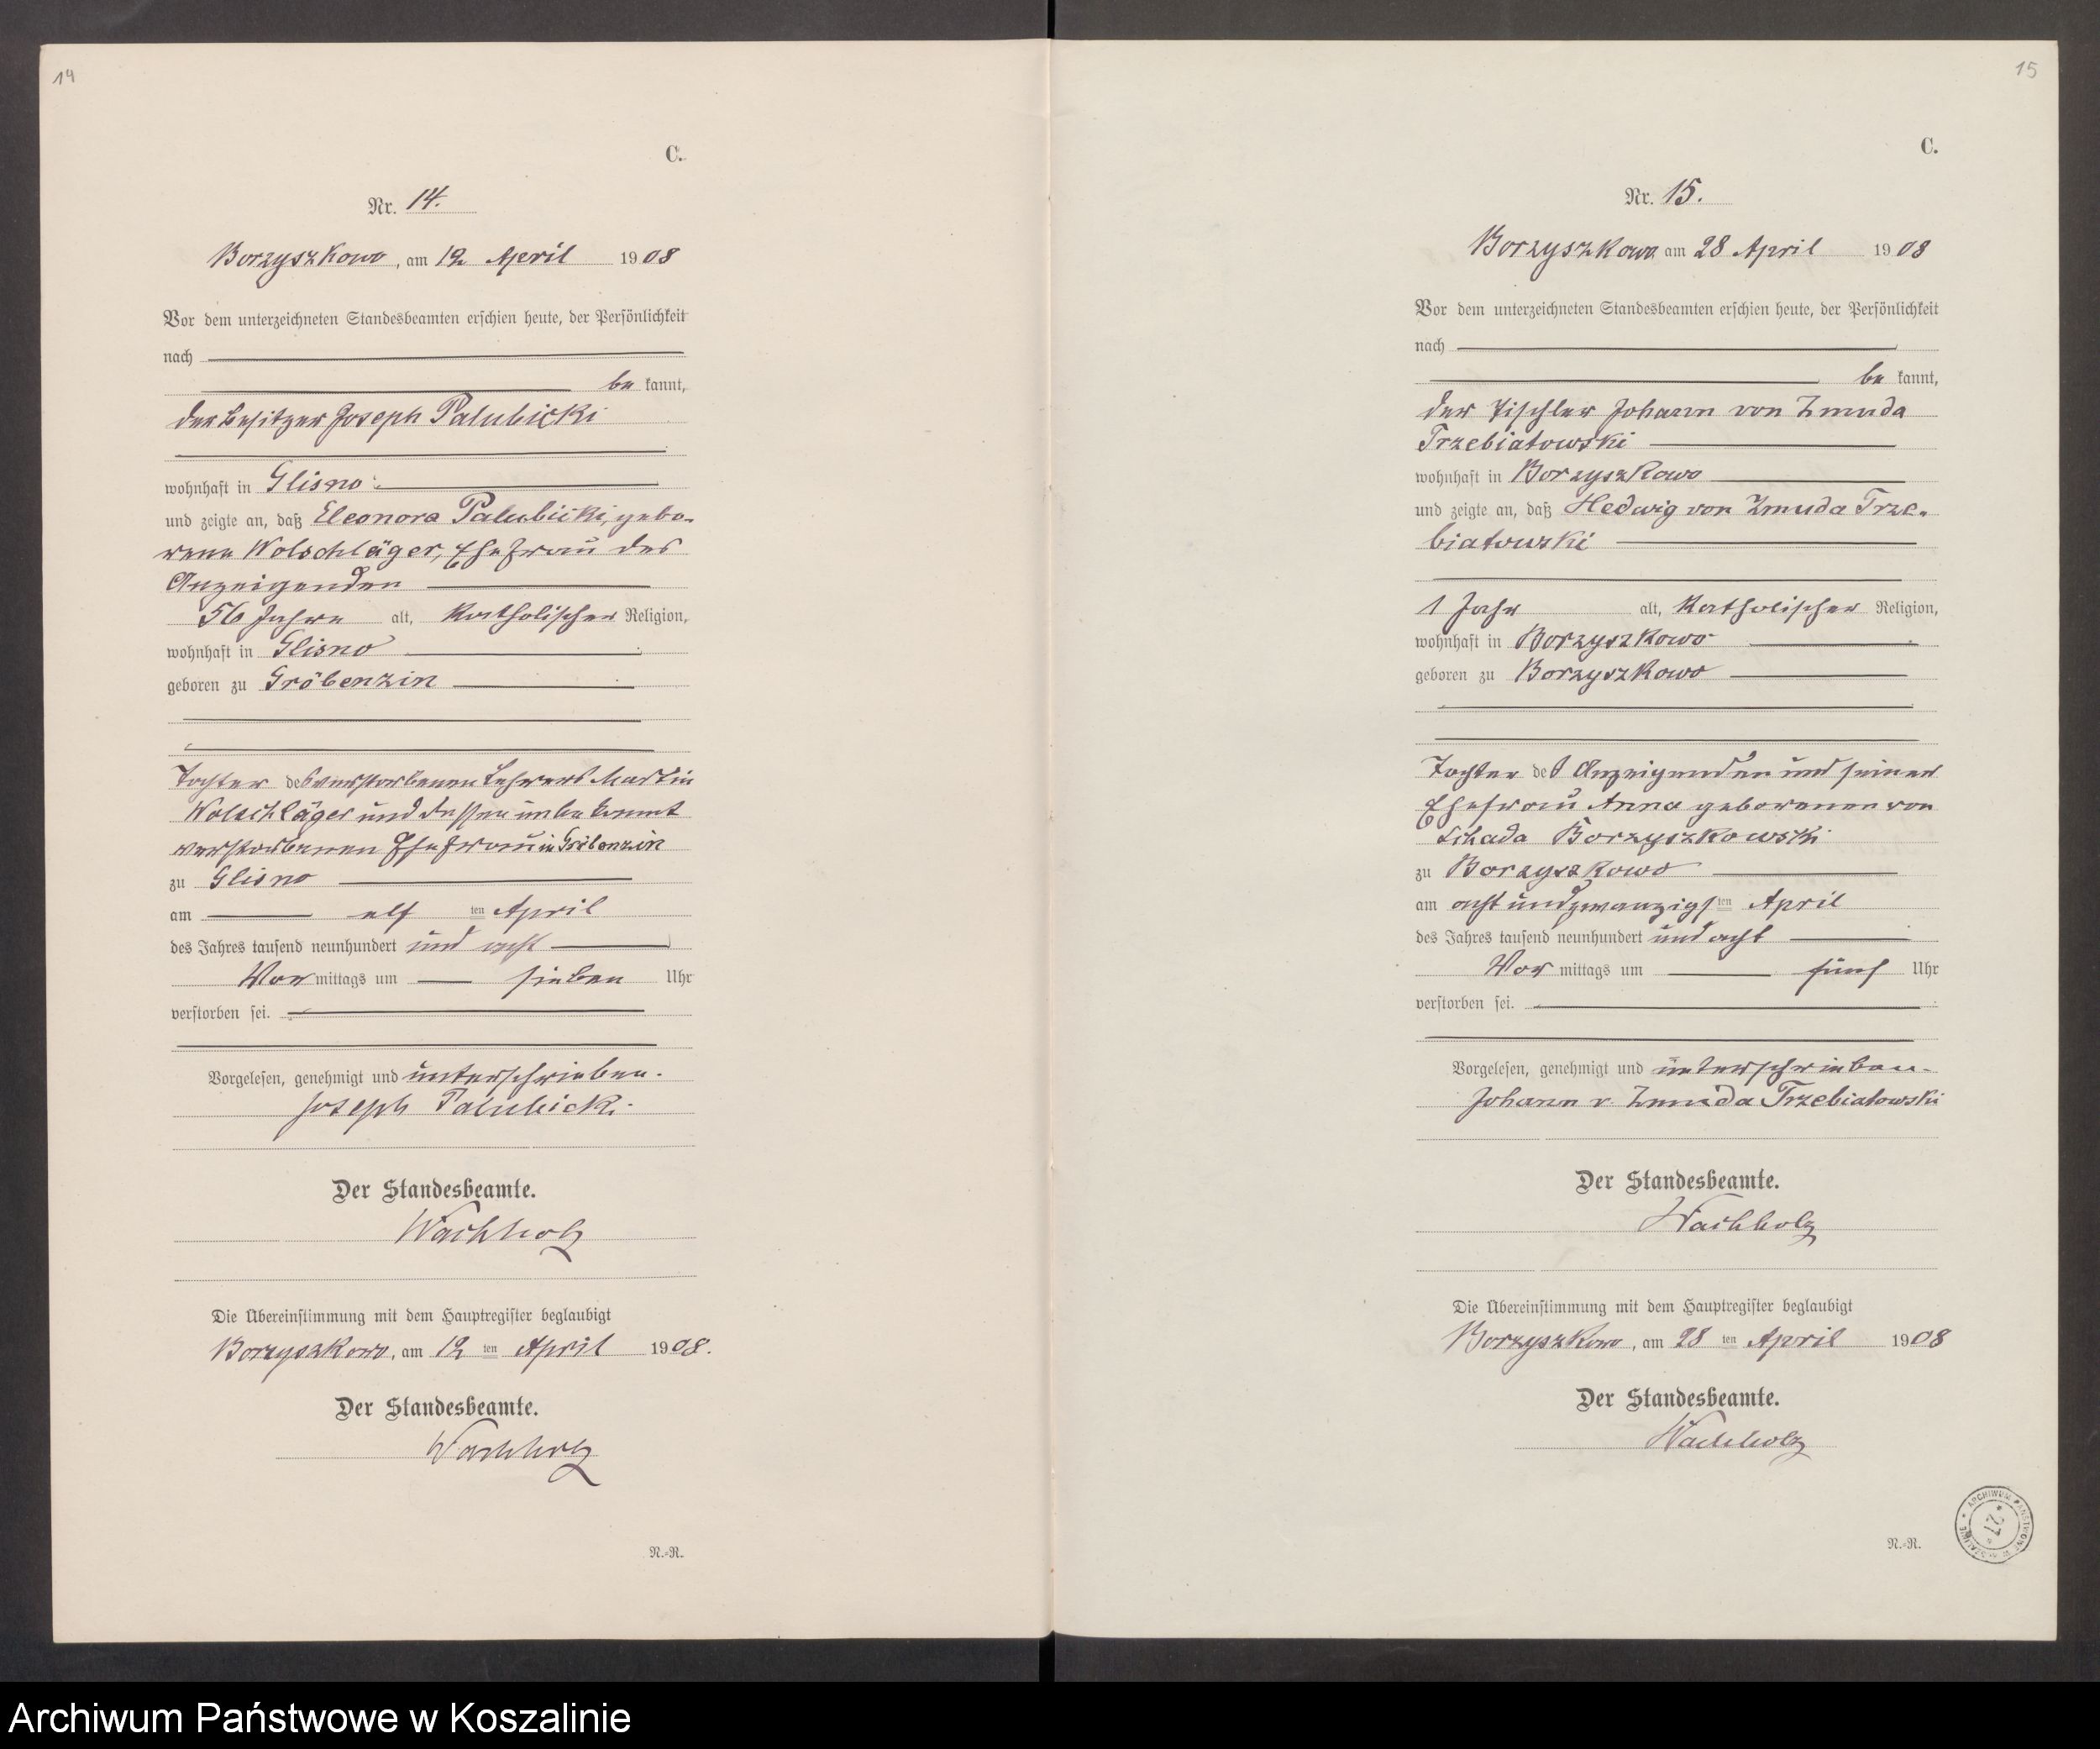 14
C.
Nr. 14.
Borzyszkowo, am 12 April 1908
Vor dem unterzeichneten Standesbeamten erschien heute, der Persönlichkeit
nach
be kannt,
der Besitzer Joseph Palubicki
wohnhaft in Glisno
und zeigte an, daß Eleonora Palubicki, gebo-
rene Wolschläger, Ehefrau des
Anzeigenden
56 Jahre alt, katholischer Religion,
wohnhaft in Glisno
geboren zu Gröbenzin
Tochter des verstorbenen Lehrers Martin
Wolschläger und dessen unbekannt
verstorbenen Ehefrau in Gröbenzin
zu Glisno
am elf ten April
des Jahres tausend neunhundert und acht
Vor mittags um sieben Uhr
verstorben sei.
Vorgelesen, genehmigt und unterschrieben.
Joseph Palubicki
Der Standesbeamte.
Wachholz
Die Übereinstimmung mit dem Hauptregister beglaubigt
Borzyszkowo, am 12 ten April 1908.
Der Standesbeamte.
Wachholz
N.-R.
15
C.
Nr. 15.
Borzyszkowo am 28 April 1908
Vor dem unterzeichneten Standesbeamten erschien heute, der Persönlichkeit
nach
be kannt,
der Tischler Johann von Zmuda
Trzebiatowski
wohnhaft in Borzyszkowo
und zeigte an, daß Hedwig von Zmuda Trze-
biatowski
1 Jahr alt, katholischer Religion,
wohnhaft in Borzyszkowo
geboren zu Borzyszkowo
Tochter des Anzeigenden und seiner
Ehefrau Anna geborenen von
Schada Borzyszkowski
zu Borzyszkowo
am acht und zwanzigsten April
des Jahres tausend neunhundert und acht
Vor mittags um fünf Uhr
verstorben sei.
Vorgelesen, genehmigt und unterschrieben.
Johann v. Zmuda Trzebiatowski
Der Standesbeamte.
Wachholz
Die Übereinstimmung mit dem Hauptregister beglaubigt
Borzyszkowo, am 28 ten April 1908
Der Standesbeamte.
Wachholz
N.-R.
ARCHIWUM PAŃSTWOWE W KOSZALINIE
27
Archiwum Państwowe w Koszalinie